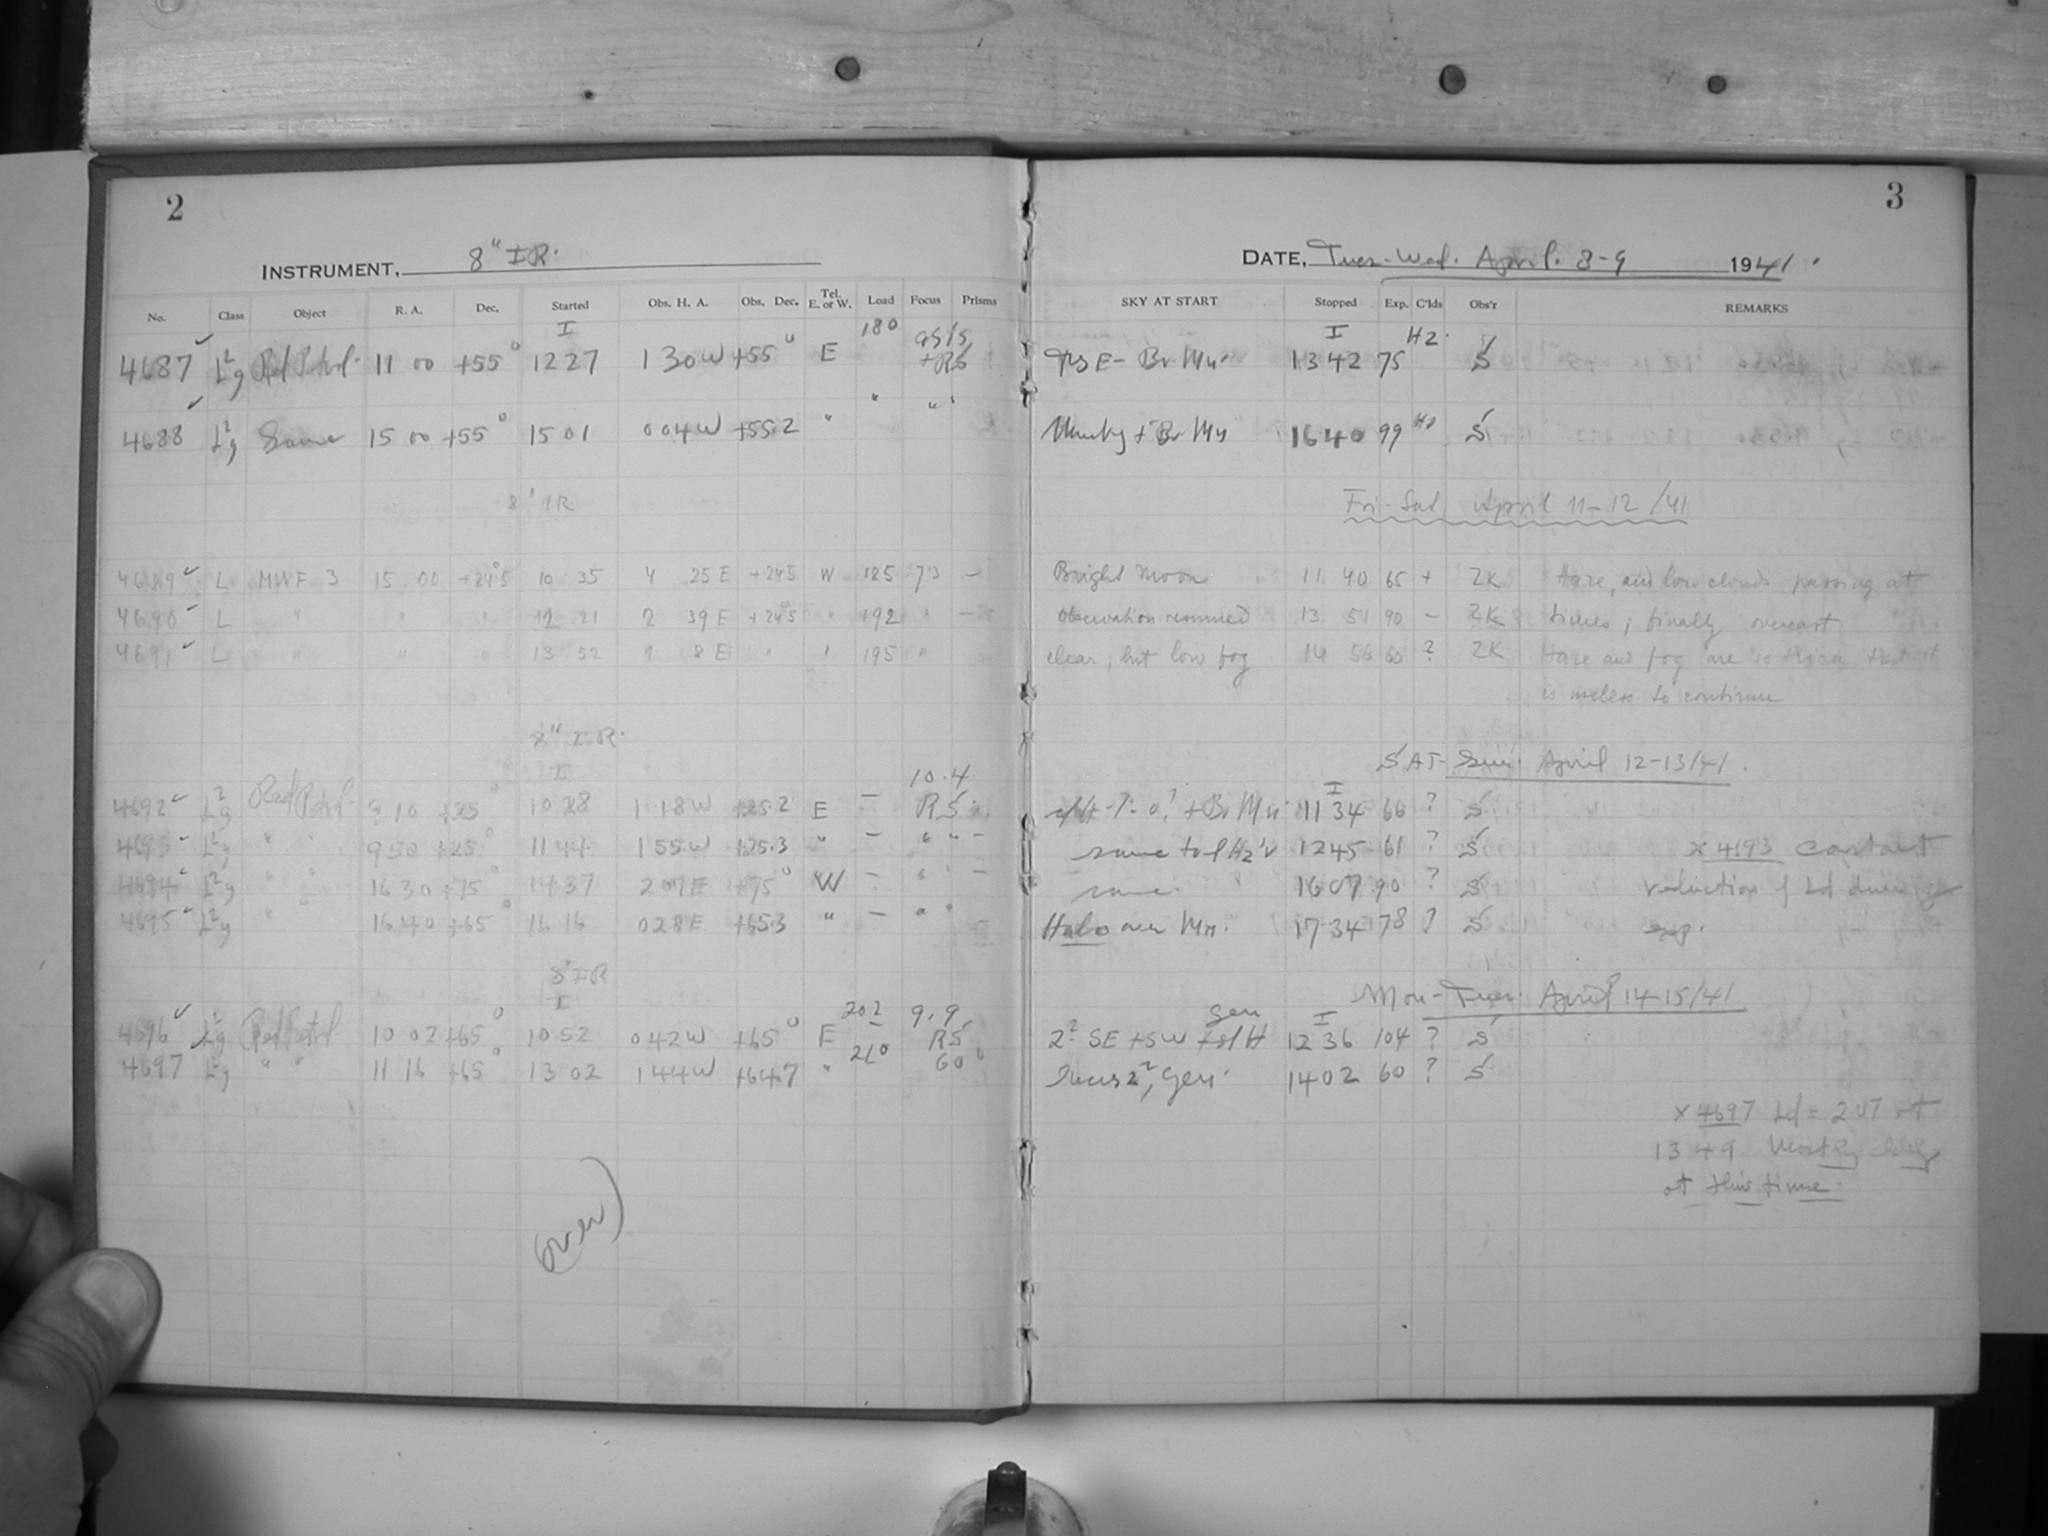 2
INSTRUMENT, 8" IR.
No. Class Object R. A. Dec. Started Obs. H. A. Obs. Dec. Tel. E. or W. Load Focus Prisms
I 180
4687 ✓ L²g Red Patrol. 11 00 +55° 12 27 1 30 W +55° E +R5
4688 ✓ L²g Same 15 00 +55° 15 01 0 04 W +55.2 " " "
8" IR
4689 ✓ L MWF 3 15 00 +24°5 10 35 4 25 E +24.5 W 185 7.3 –
4690 ✓ L " " " 12 21 2 39 E +24°5 " 192 " –
4691 ✓ L " " " 13 52 1 8 E " " 195 "
8" I.R.
I 10.4
4692 ✓ L²g Red Patrol 9 10 +25° 10 28 1 18 W +25.2 E – R5
4693 ✓ L²g " " 9 50 +25° 11 44 1 55 W +25.3 " – " " –
4694 ✓ L²g " " 16 30 +75° 14 37 2 07 E +75° W – " " –
4695 ✓ L²g " " 16 40 +65° 16 16 0 28 E +65.3 " – " "
8" IR
I 202 9.9
4696 ✓ L²g Red Patrol 10 02 +65° 10 52 0 42 W +65° E – R5
4697 L²g " " 11 16 +65° 13 02 1 44 W +64.7 " 210 60°
(over)
3
DATE, Tues-Wed. April. 8-9 1941.
SKY AT START Stopped Exp. C'lds Obs'r REMARKS
I Hz.
E – Br Mn. 13 42 75 S
+ Br Mn 16 40 99 Hz S
Fri-Sat April 11-12/41
Bright Moon 11 40 65 + ZK Haze, and low clouds passing at
Observation resumed 13 51 90 – ZK times; finally overcast
clear, but low fog 14 56 ? ZK Haze and fog are so thick that it
is useless to continue
SAT-Sun. April 12-13/41.
I
+ Br Mn 11 34 66 ? S
same 12 45 61 ? S x 4693 constant
same. 16 07 90 ? S reduction of Ld during
Halo over Mn. 17 34 78 ? S exp.
Mon-Tues. April 14-15/41
gen I
2² SE + SW + 12 36 104 ? S
2², gen. 14 02 60 ? S
x 4697 Ld = 207 at
13 49. Mostly cldy
at this time.